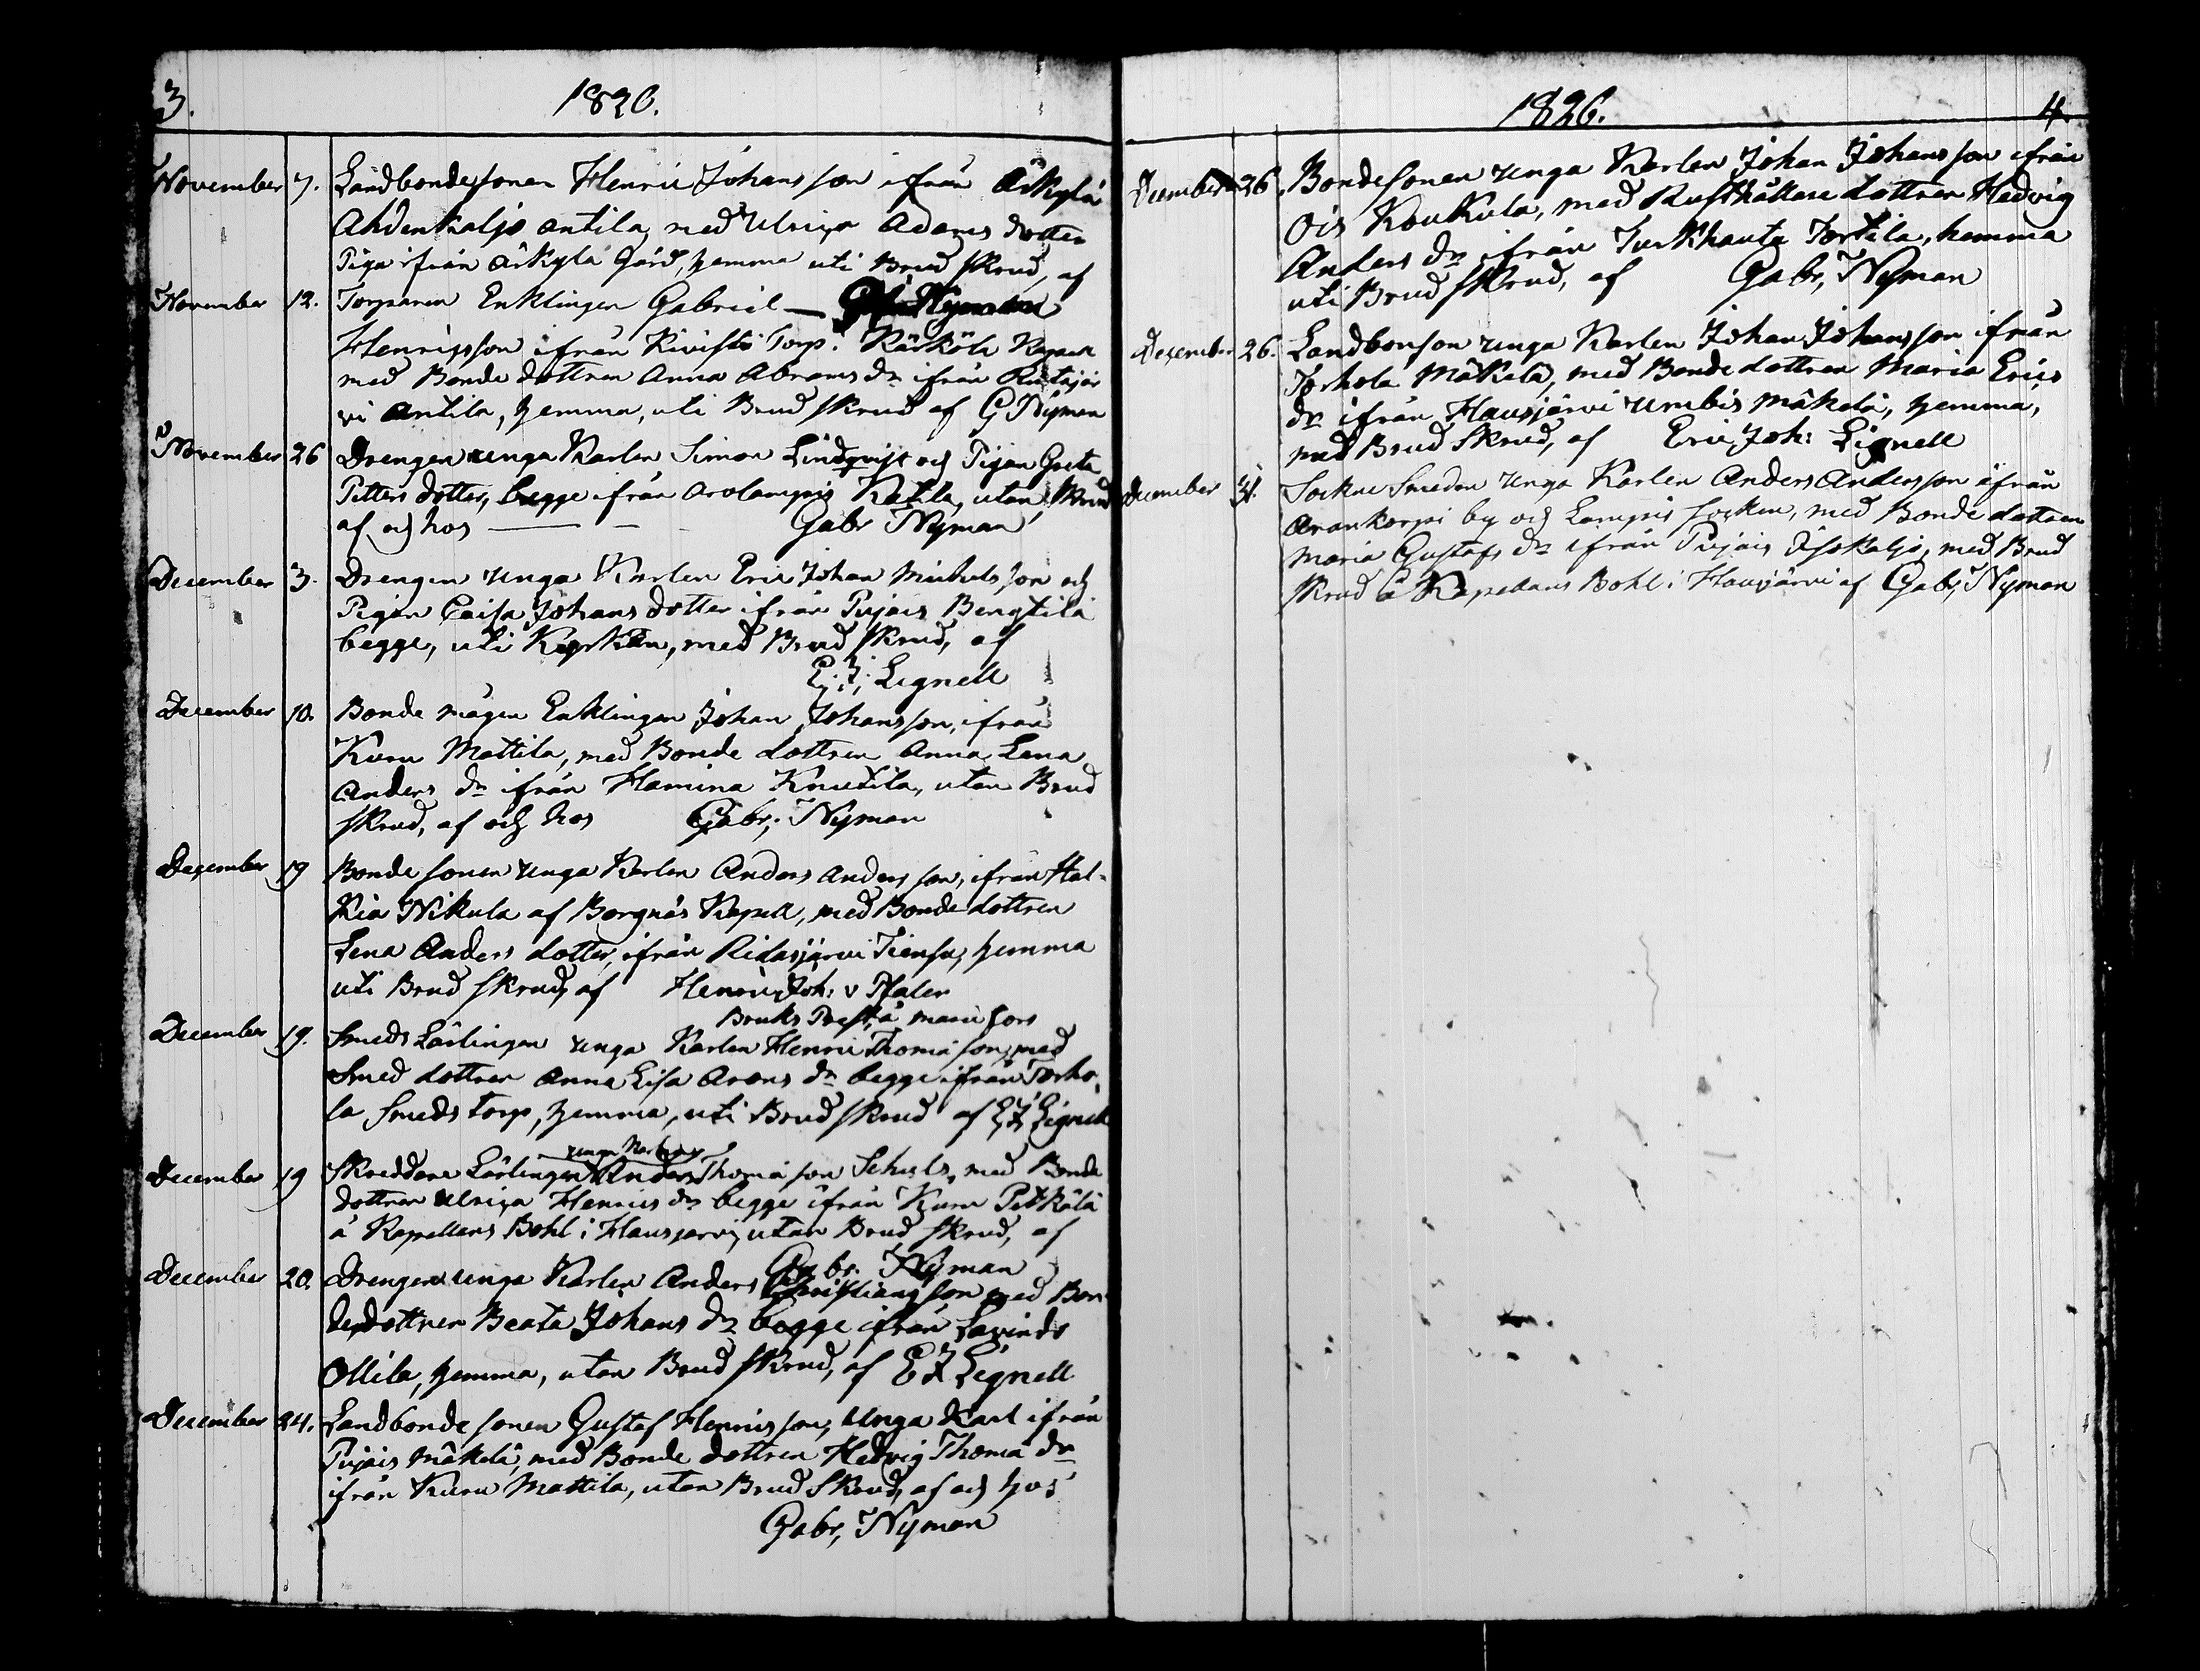 3.
1826.
November 7. Landbondesonen Henric Johansson ifrån Erkylä
Ahdenkaljo Antila, med Ulrica Adams dotter
Piga ifrån Erkylä Gård, hemma uti Brud skrud, af
November 12. Torparen Enklingen Gabriel — G. Nyman
Henriksson ifrån Kivistö Torp. Kärkölä Kapell
med Bonde dottren Anna Abrams dr ifrån Ridasjär
vi Antila, hemma, uti Brud skrud af G Nyman
November 26 Drengen unga Karlen Simon Lindqvist och Pigan Greta
Petters dotter, begge ifrån Arolampis Katila, utan skrud
af och hos — Gabr Nyman
December 3. Drengen unga Karlen Eric Johan Michels son och
Pigan Caisa Johans dotter ifrån Pujais Bengtilä
begge, uti Kyrkan, med Brud skrud, af
E; J; Lignell
December 10. Bonde mågen Enklingen Johan Johansson, ifrån
Kuru Mattila, med Bonde dottren Anna Lena
Anders dr ifrån Hamina Knutila, utan Brud
skrud, af och hos Gabr; Nyman
December 19 Bonde sonen unga Karlen Anders Anders son, ifrån Hal-
kia Nikula af Borgnäs Kapell, med Bonde dottren
Lena Anders dotter, ifrån Ridasjärvi Tiensu, hemma
uti Brud skrud, af Henric Joh: v Pfaler
Bruks Prest å Mariefors
December 19. Smeds Lärlingen unga Karlen Henric Thomæ son, med
Smed dottren Anna Lisa Arons dr begge ifrån Torho-
la Smeds torp, hemma, uti Brud skrud af E J Lignell
unga Karlen
December 19 Skreddare Lärlingen Anders Thomæ son Schuls, med Bonde
dottren Ulrica Henrics dr begge ifrån Kuru Pitkälä
å Kapellans Bohl i Hausjervi, utan Brud skrud, af
Gabr. Nyman
December 20. Drengen unga Karlen Anders Christians son med Bon-
dedottren Beata Johans dr begge ifrån Lavinds
Ollila, hemma, utan Brud skrud, af E J Lignell
December 24. Landbonde sonen Gustaf Henrics son, unga Karl ifrån
Pujais Mäkelä, med Bonde dottren Hedvig Thomæ dr
ifrån Kuru Mattila, utan Brud skrud, af och hos
Gabr, Nyman
1826. 4.
December 26. Bondesonen unga Karlen Johan Johansson ifrån
Ois Koukula, med Rusthållare dottren Hedvig
Anders dr ifrån Turkhauta Torttila, hemma
uti Brud skrud, af Gabr, Nyman
December 26. Landbonson unga Karlen Johan Johansson ifrån
Torhola Mäkelä, med Bonde dottren Maria Erics
dr ifrån Hausjärvi Umbis Mäkelä, hemma,
med Brud skrud, af Eric Joh: Lignell
December 31. Socken Smeden unga Karlen Anders Andersson ifrån
Avankorpi by och Lampis socken, med Bonde dottren
Maria Gustafs dr ifrån Pujais Isokaljo, med Brud
skrud å Kapellans Bohl i Hausjärvi af Gabr, Nyman